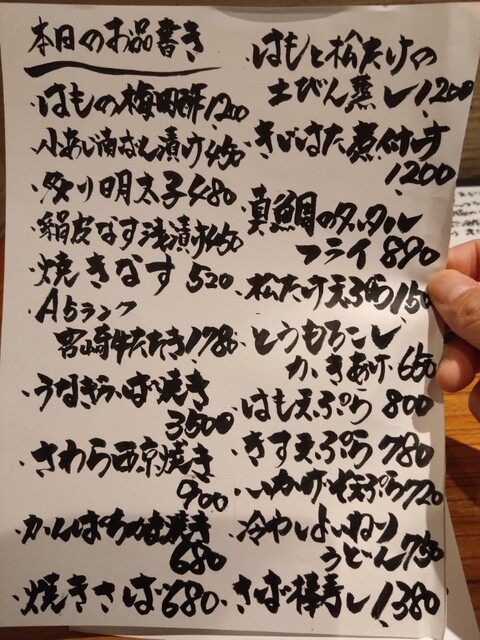 本日のお品書き
・はもの梅肉酢 1200
・小あじ南ばん漬け 450
・炙り明太子 480
・絹皮なす浅漬け 450
・焼きなす 520
・A5ランク
宮崎牛たたき 1780
・うなぎかば焼き
3500
・さわら西京焼き
900
・かんぱちかま焼き
680
・焼きさば 680
・はもと松たけの
土びん蒸し 1200
・きじはた煮付け
1200
・真鯛のタルタル
フライ 890
・松たけ天ぷら 150
・とうもろこし
かきあげ 650
・はも天ぷら 800
・きす天ぷら 780
・いかげそ天ぷら 720
・冷やし
うどん 750
・さば棒寿し 1380